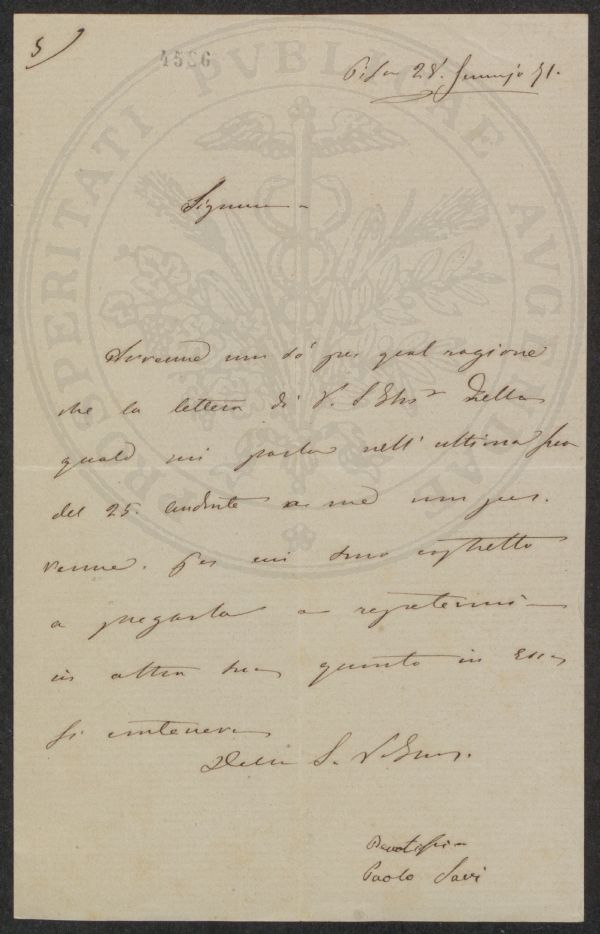 5)
4526
Pisa 28. Gennajo 71.
PROSPERITATI PVBLICAE AVGENDAE
Signore
Avvenne non sò per qual ragione
che la lettera di V. S Ill.ma Della
quale mi parla nell' ultima sua
del 25. andante a me non per-
venne. per cui sono costretto
a pregarla a ripetermi
in altra sua quanto in Essa
si conteneva
Della S. V.
Paolo Savi